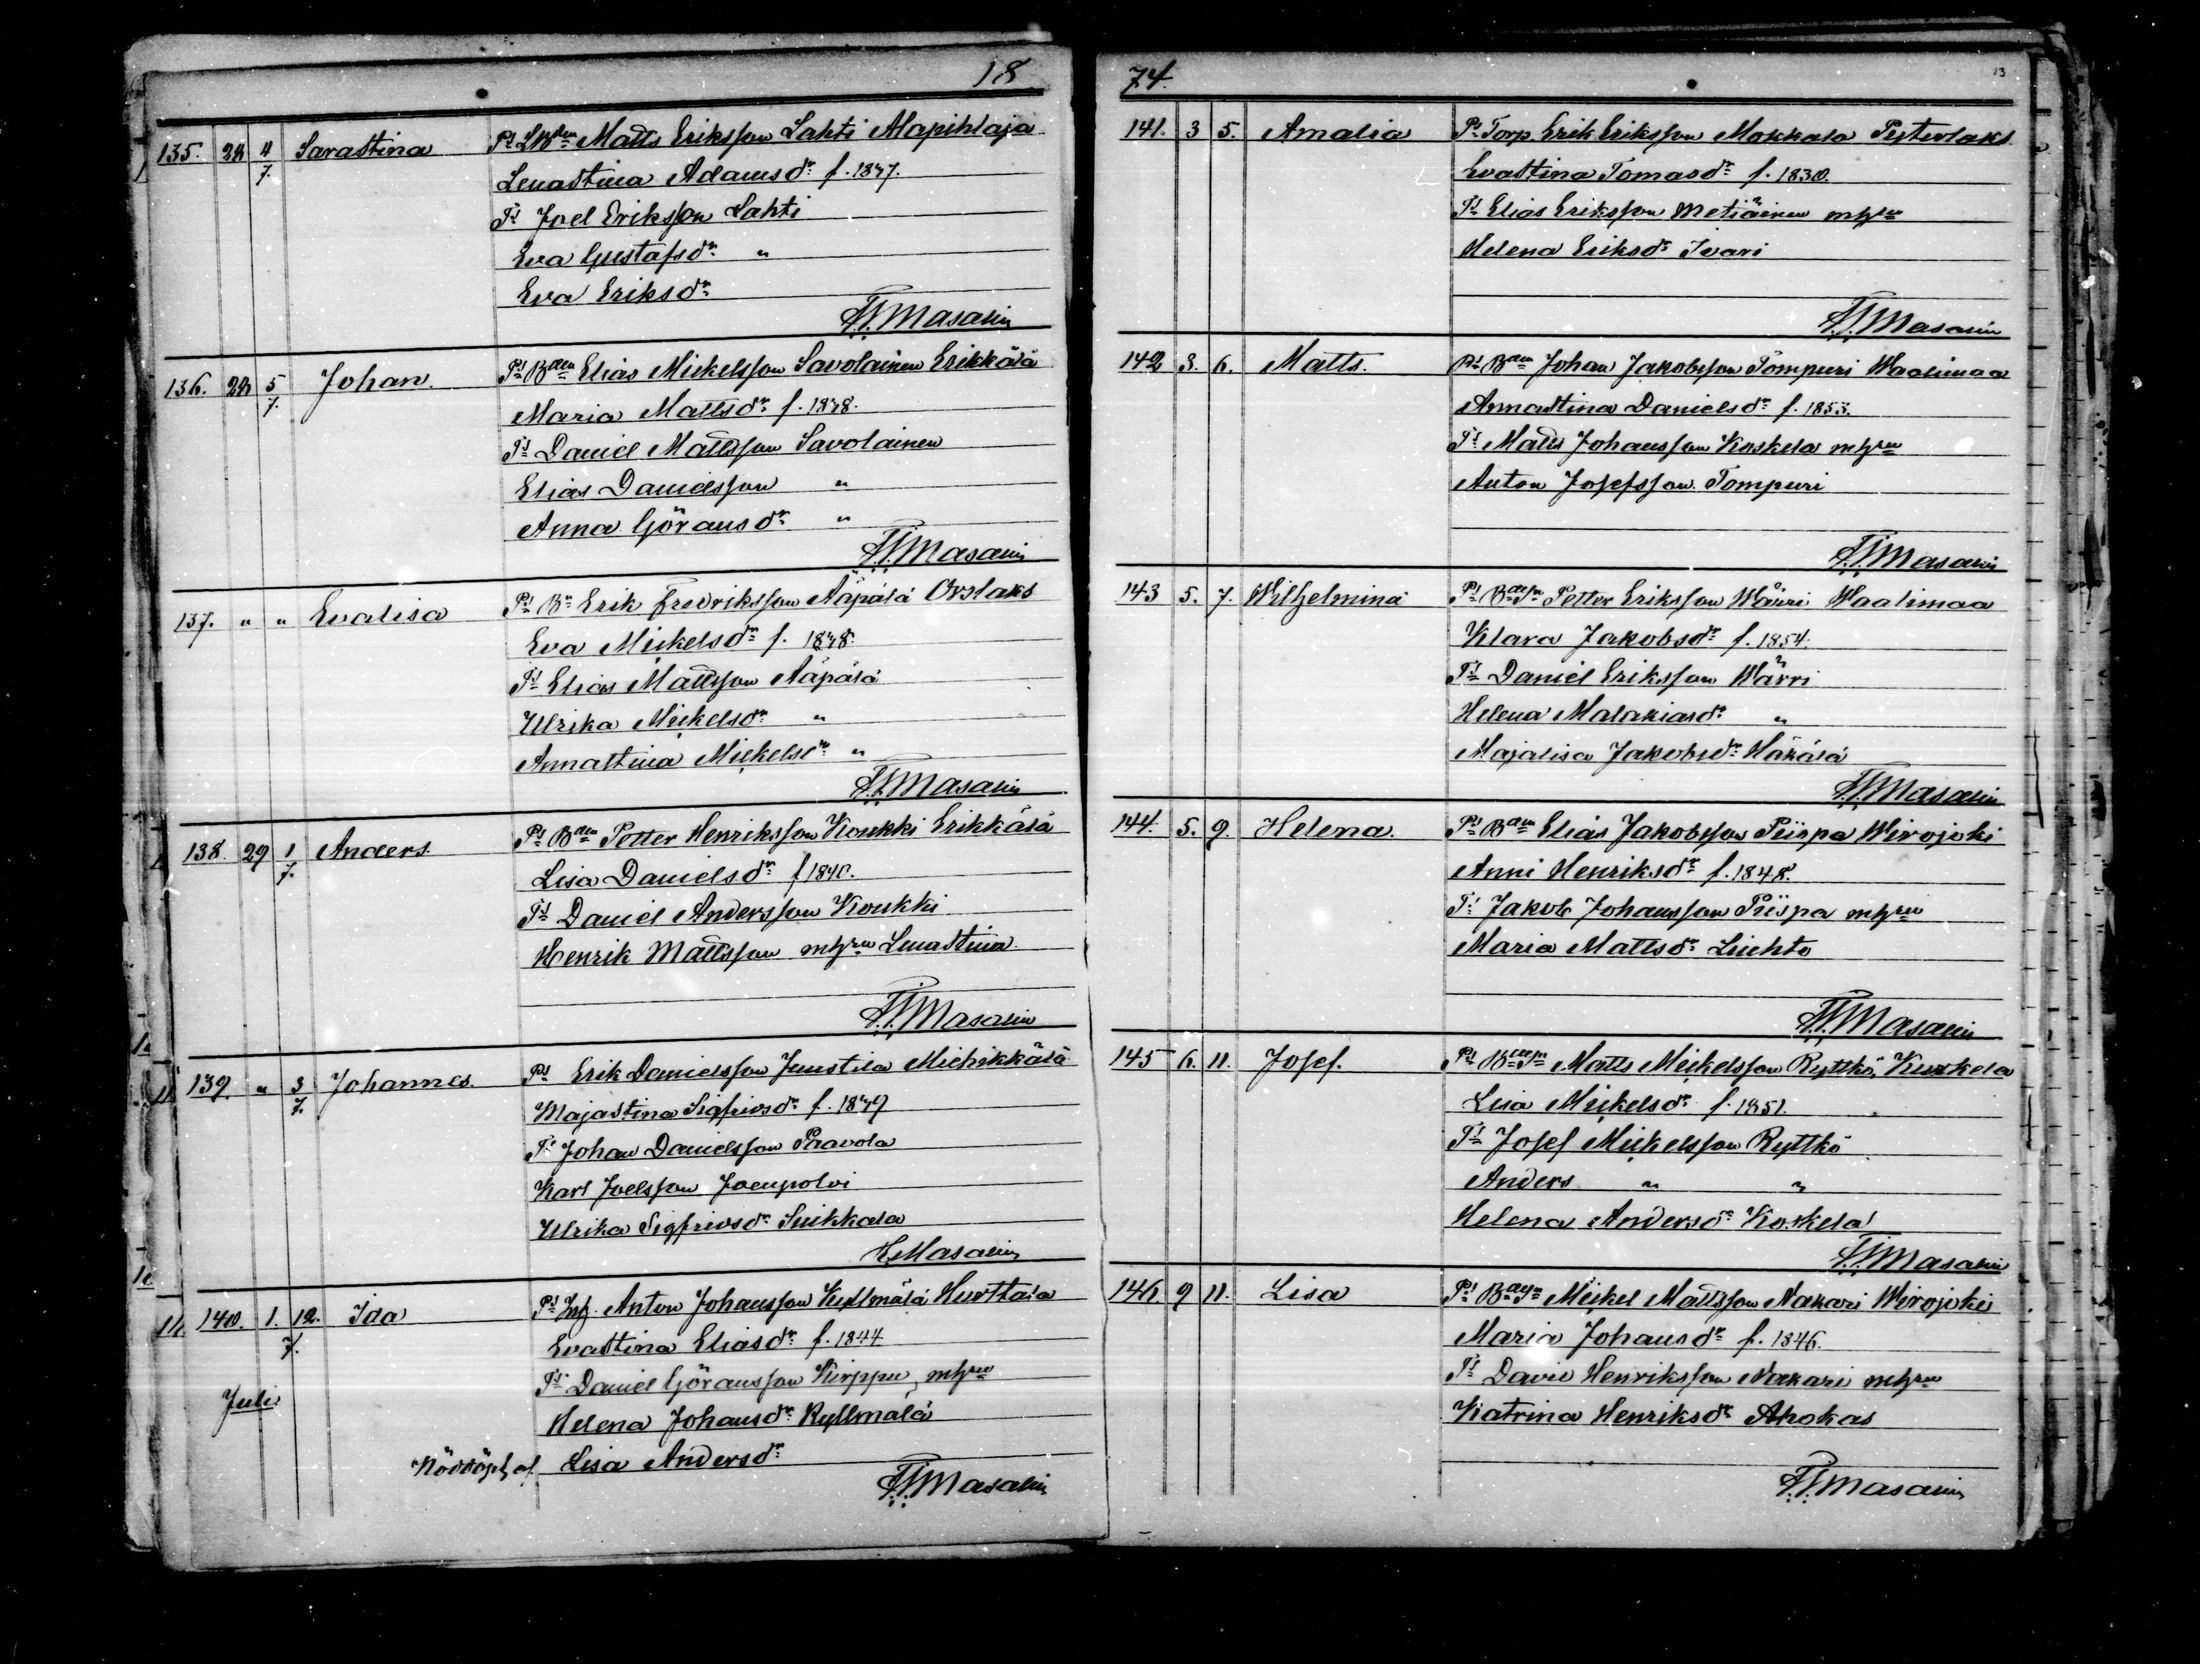 18
135. 28 4/7. Sarastina Ps LBdn Matts Eriksson Lahti Alapihlaja
Lenastina Adamsdr f. 1847.
Ts Joel Eriksson Lahti
Eva Gustafsdr "
Eva Eriksdr
Masalin
136. 28 5/7. Johan Ps Bdn Elias Mickelsson Savolainen Erikkälä
Maria Mattsdr f. 1848.
Ts Daniel Mattsson Savolainen
Elias Danielsson "
Anna Göransdr "
Masalin
137. " " Evalisa Ps Bn Erik Fredriksson Ääpälä Orslaks
Eva Mickelsdr f. 1848.
Ts Elias Mattsson Ääpälä
Ulrika Mickelsdr "
Annastina Mickelsdr "
Masalin
138. 29 1/7. Anders Ps Bdn Petter Henriksson Koukki Erikkälä
Lisa Danielsdr f 1840.
Ts Daniel Andersson Koukki
Henrik Mattsson m hru Lenastina
Masalin
139. " 3/7. Johannes Ps Erik Danielsson Juustila Miehikkälä
Majastina Sigfrivsdr f. 1849
Ts Johan Danielsson Paavola
Karl Joelsson Joenpolvi
Ulrika Sigfrivsdr Suikkala
Masalin
140. 1. 12./7. Ida Ps Inh. Anton Johansson Kyllmälä Hurttala
Evastina Eliasdr f. 1844
Ts Daniel Göransson Kirppu, m hru
Helena Johansdr Kyllmälä
Juli
Nöddöpt af Lisa Andersdr
Masalin
74.
13
141. 3 5. Amalia Ps Torp. Erik Eriksson Mokkala Pyterlaks
Evastina Tomasdr f. 1830.
Ts Elias Eriksson Metiäinen m hru
Helena Eriksdr Ivari
Masalin
142 3. 6. Matts. Ps Bdn Johan Jakobsson Tompuri Waalimaa
Annastina Danielsdr f. 1853.
Ts Matts Johansson Koskela m hru
Anton Josefsson Tompuri
Masalin
143 5. 7. Wilhelmina Ps BdeSn Petter Eriksson Wärri Waalimaa
Klara Jakobsdr f. 1854.
Ts Daniel Eriksson Wärri
Helena Malakiasdr "
Majalisa Jakobsdr Häkälä
Masalin
144. 5. 9. Helena. Ps Bdn Elias Jakobsson Piispa Wirojoki
Anni Henriksdr f. 1848.
Ts Jakob Johansson Piispa m hru
Maria Mattsdr Liuhto
Masalin
145 6. 11. Josef. Ps BdeSn Matts Mickelsson Ryttkö, Kurkela
Lisa Mickelsdr f. 1851.
Ts Josef Mickelsson Ryttkö
Anders " "
Helena Andersdr Koskela
Masalin
146. 9 11. Lisa Ps BdeSn Mickel Mattsson Nakari Wirojoki
Maria Johansdr f. 1846.
Ts David Henriksson Nakari m hru
Katrina Henriksdr Ahokas
Masalin